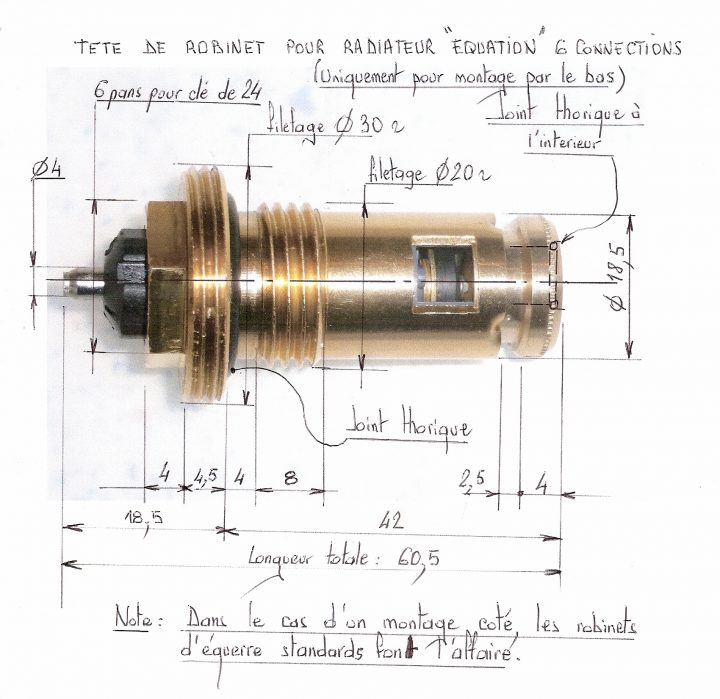 TETE DE ROBINET POUR RADIATEUR "EQUATION" 6 CONNECTIONS
(Uniquement pour montage par le bas)
6 pans pour clé de 24
Joint thorique à
l'interieur
filetage Ø 30 r
filetage Ø20 r
Ø4
Ø 18,5
Joint thorique
4
4,5
4
8
2,5
4
18,5
42
Longueur totale : 60,5
Note : Dans le cas d'un montage coté, les robinets
d'équerre standards font l'affaire.